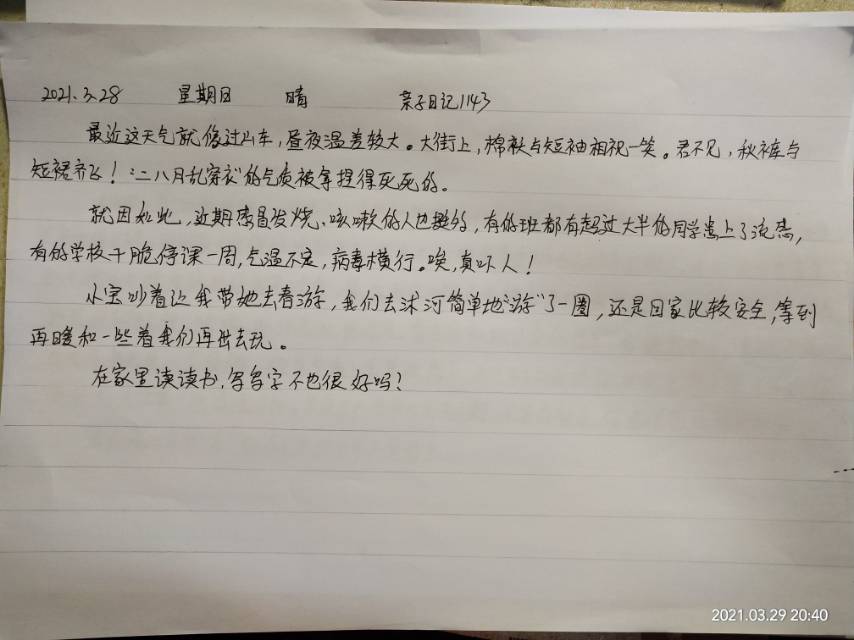 2021.3.28 星期日 晴 亲子日记1143
最近这天气就像过山车,昼夜温差较大。大街上,棉袄与短袖相视一笑。君不见,秋裤与
短裙齐飞!“二八月乱穿衣”的气质被拿捏得死死的。
就因如此,近期感冒发烧、咳嗽的人也较多,有的班都有超过大半的同学患上了流感,
有的学校干脆停课一周,气温不定,病毒横行。唉,真吓人!
小宝吵着让我带她去春游,我们去沭河简单地“游”了一圈,还是回家比较安全,等到
再暖和一些着我们再出去玩。
在家里读读书,写写字不也很好吗?
2021.03.29 20:40